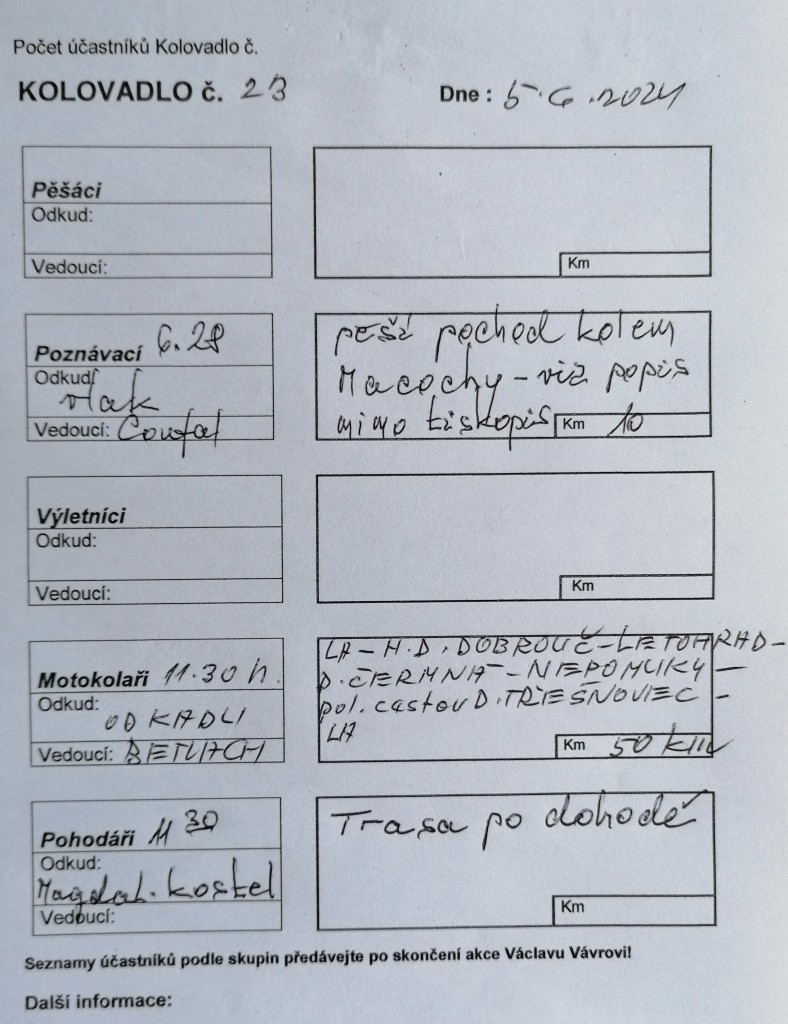 Počet účastníků Kolovadlo č.
KOLOVADLO č. 23 Dne : 5.6.2024
Pěšáci
Odkud:
Vedoucí:
Km
Poznávací 6.28
Odkud:
vlak
Vedoucí: Coufal
pěší pochod kolem
Macochy - viz popis
mimo tiskopis
Km 10
Výletníci
Odkud:
Vedoucí:
Km
Motokolaři 11.30 h.
Odkud:
OD KADLI
Vedoucí: BETLACH
LA - H.D. DOBROUČ - LETOHRAD -
D. ČERMNÁ - NEPOMUKY -
pol. cestou D. TŘEŠŇOVEC -
LA
Km 50 km
Pohodáři 11 30
Odkud:
Magdal. kostel
Vedoucí:
Trasa po dohodě
Km
Seznamy účastníků podle skupin předávejte po skončení akce Václavu Vávrovi!
Další informace: